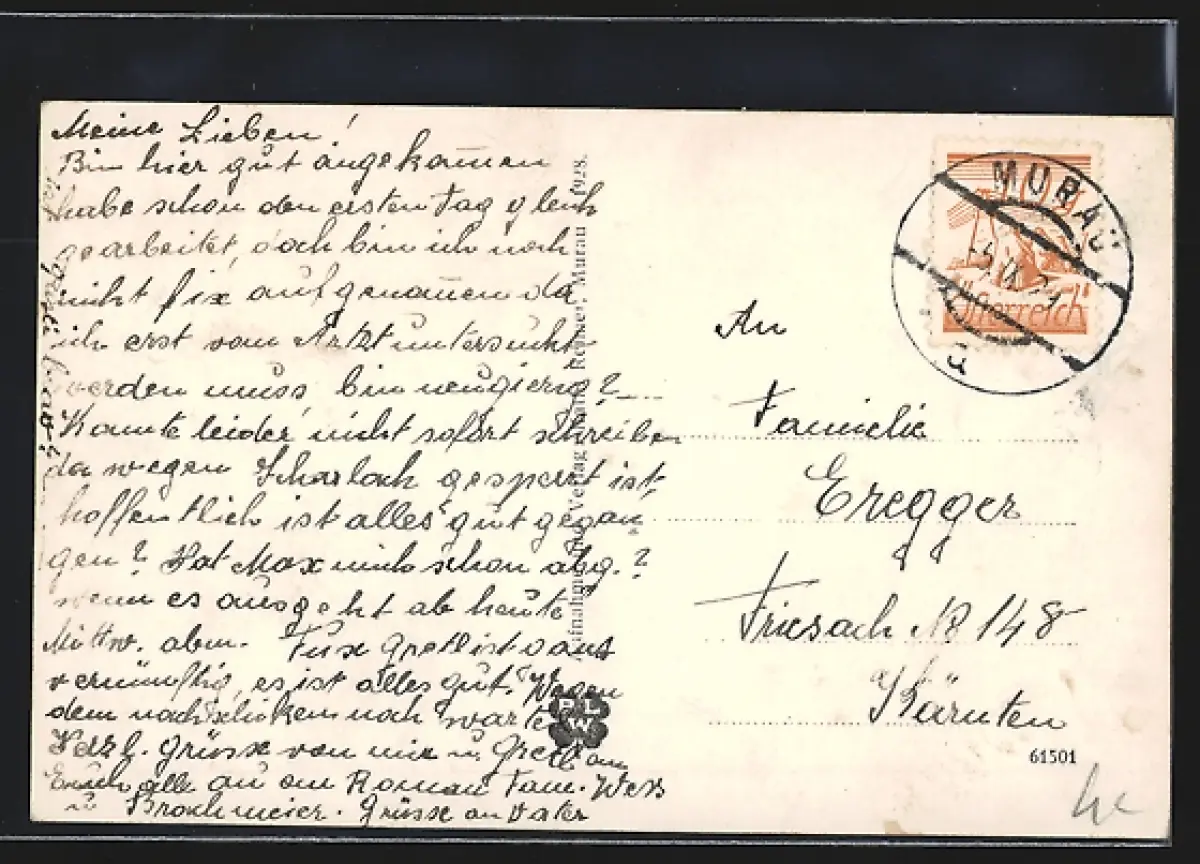 Meine Lieben!
Bin hier gut angekom̄en
habe schon den ersten Tag gleich
gearbeitet, doch bin ich noch
nicht fix aufgenom̄en da
ich erst vom Artzt untersucht
werden muss bin neugierig?
Konnte leider nicht sofort schreiben
da wegen Scharlach gesperrt ist,
hoffentlich ist alles gut gegan
gen? Hat Max mich schon abg.?
wenn es ausgeht ab heute
Mittw. abm. Fux Gretl ist
vernünftig, es ist alles gut. Wegen
dem nachschicken noch warten
Herzl. Grüsse von mir u. Gretl an
Euch alle an Roman Fam. Werb
u. Brochmeier. Grüsse an Vater
Aufnahme und Verlag Murau 1928.
PLW
Österreich
MURAU
a
An
Familie
Eregger
Friesach № 148
Kärnten
61501